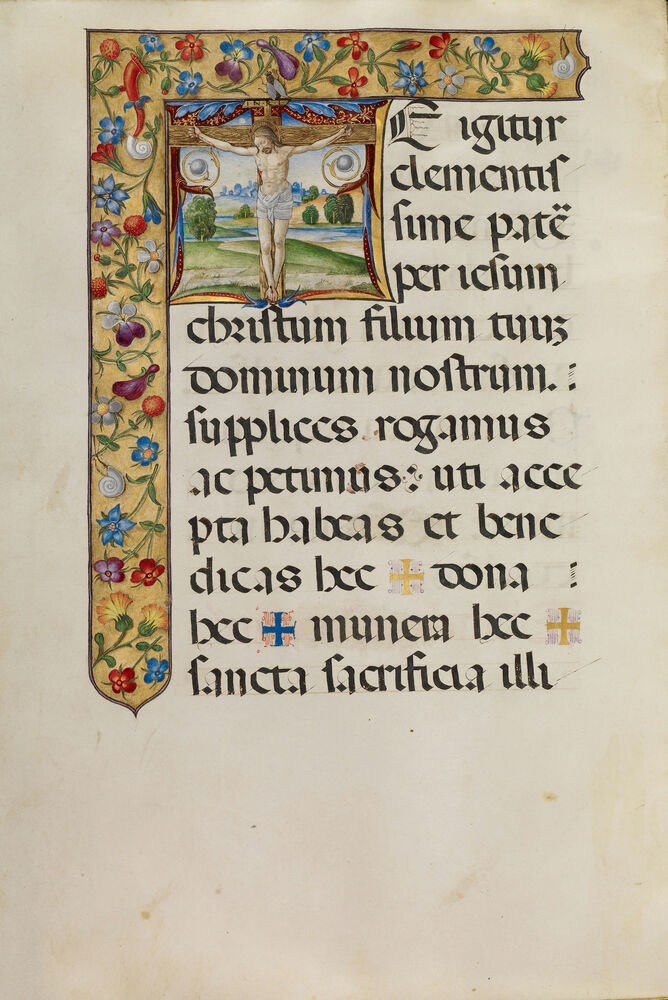 INRI
TE igitur
clementis
sime patē
per iesum
christum filium tuuʒ
dominum nostrum. :
supplices rogamus
ac petimus: uti acce
pta habeas et bene
dicas hec ✠ dona :
hec ✠ munera hec ✠
sancta sacrificia illi